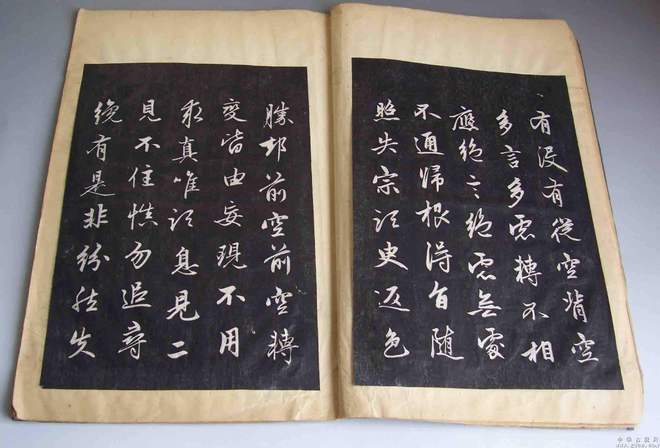 有沒有從空背空
多言多慮轉不相
應絕言絕慮無處
不通歸根得旨隨
照失宗須臾返色
勝却前空前空轉
變皆由妄現不用
求真唯須息見二
見不住慎勿追尋
纔有是非紛然失